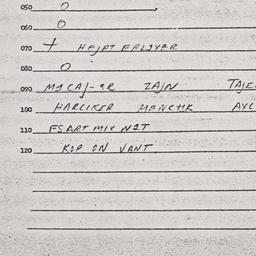 050 O
060 O
070 + HEJPT ERLIVER
080 O
090 MACAJ-ER ZAJN TAJE
100 HARLIKER MENCHK AVL
110 ES ART MIX NIT
120 KOP ON VANT